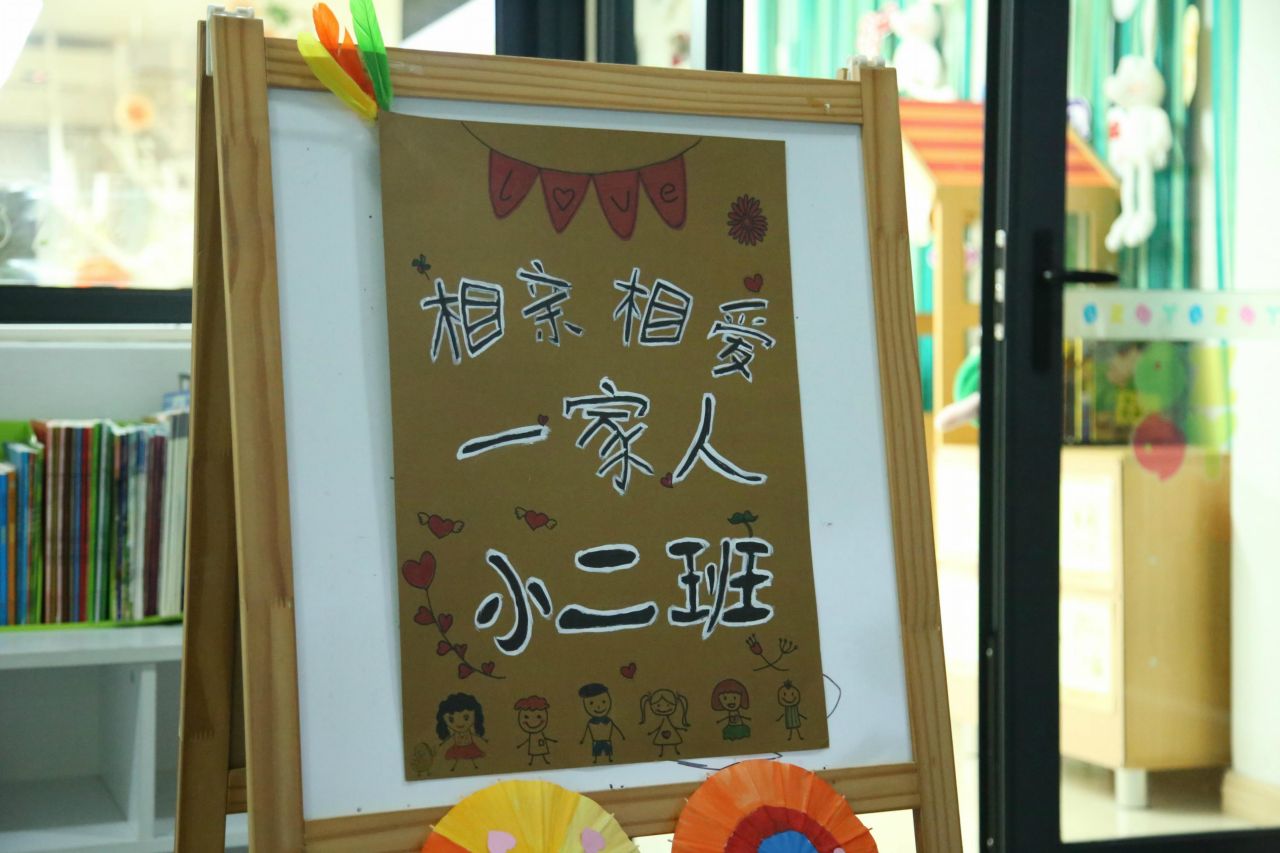 love
相亲相爱
一家人
小二班
OZOYOZOY